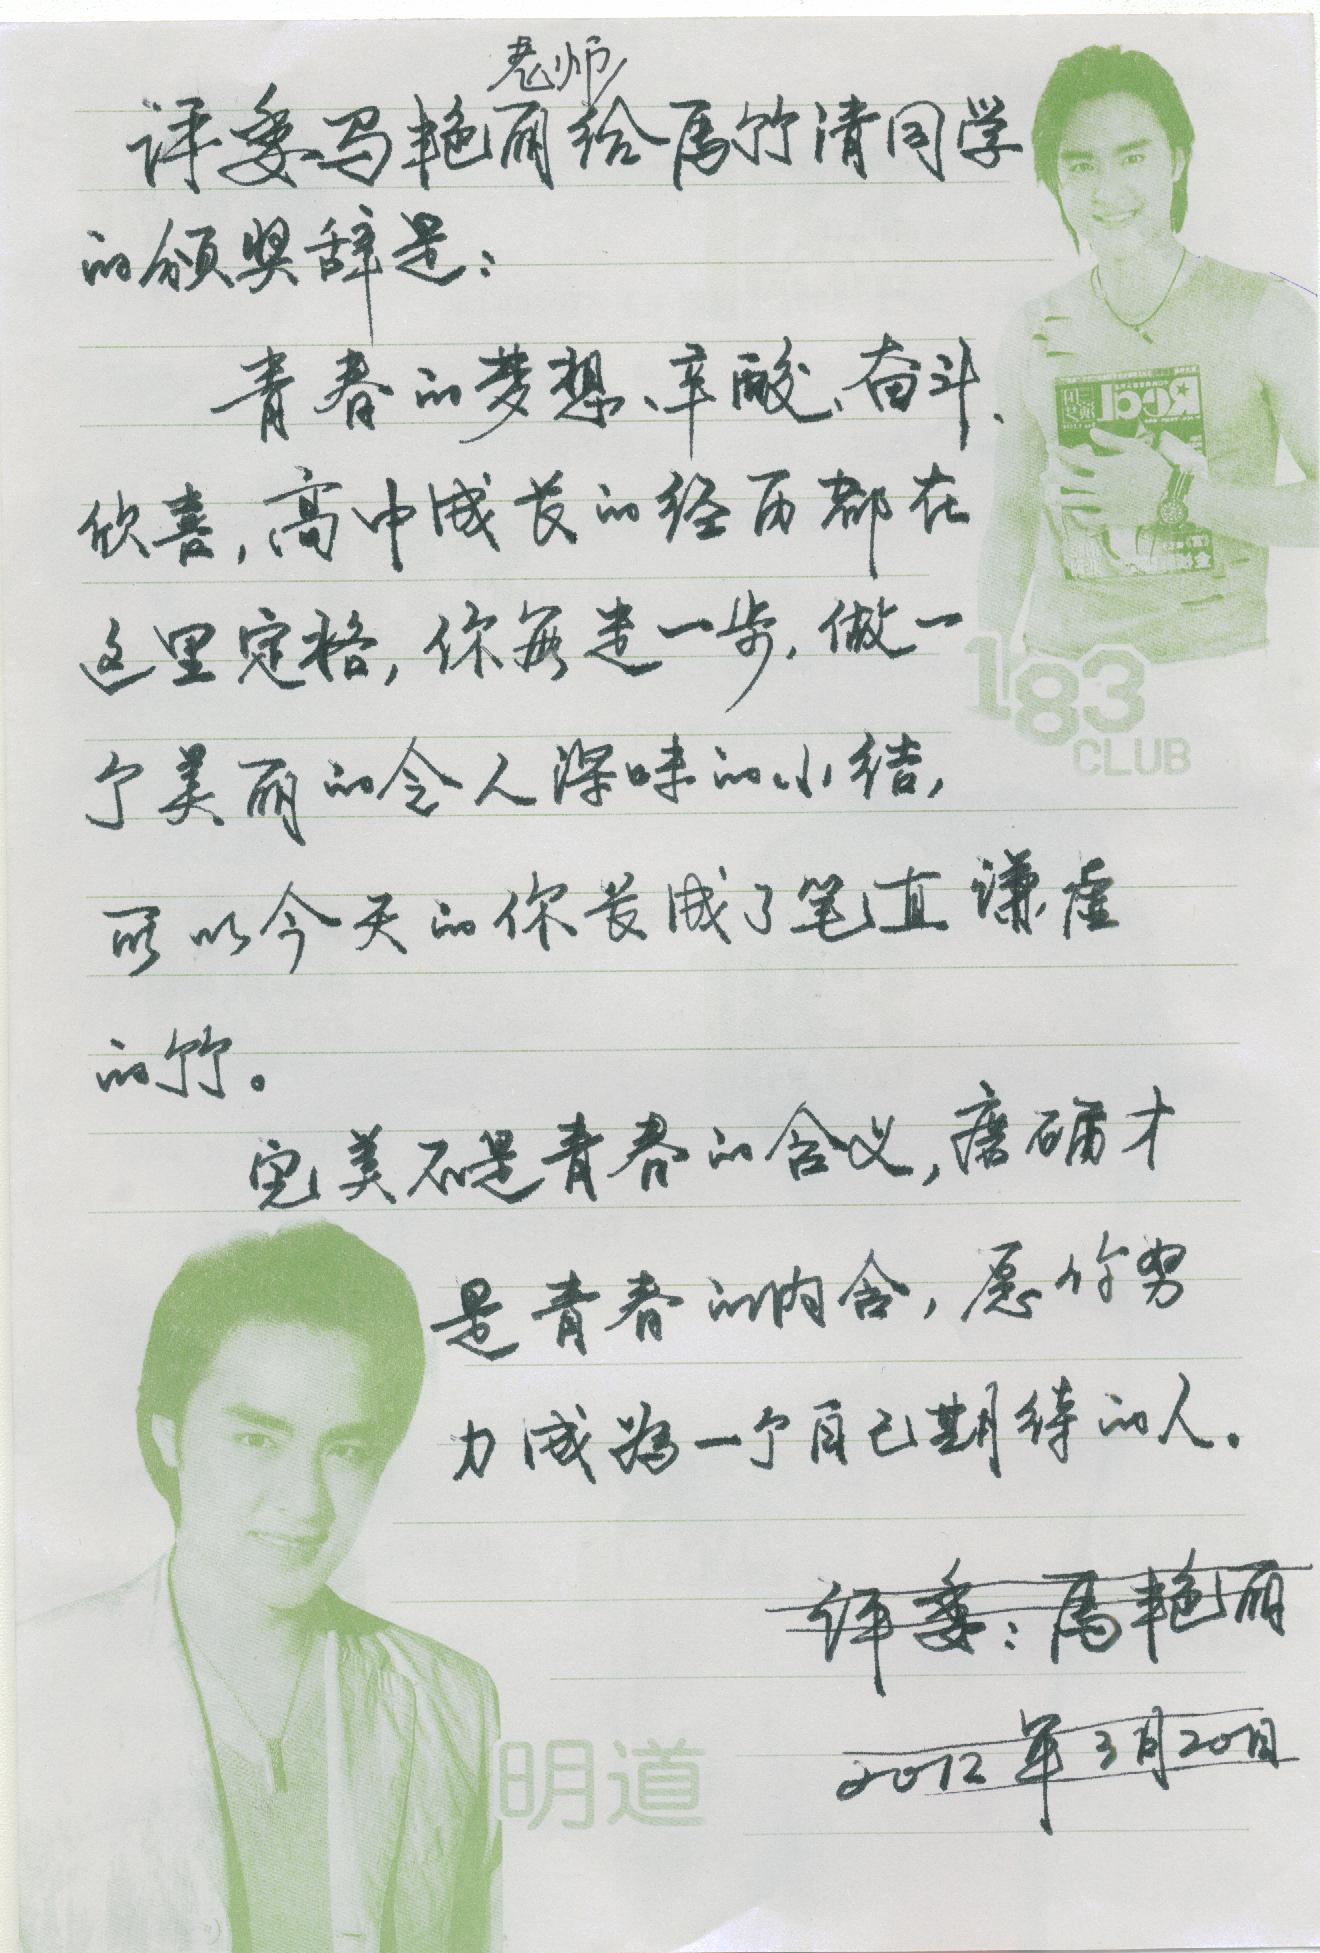 老师
评委马艳丽给馬竹清同学
的颁奖辞是：
青春的梦想、辛酸、奋斗、
欣喜，高中成长的经历都在
这里定格，你每走一步，做一
个美丽的令人深味的小结，
所以今天的你长成了笔直谦虚
的竹。
完美不是青春的含义，磨砺才
是青春的内含，愿你努
力成为一个自己期待的人。
评委：馬艳丽
2012年3月20日
183
CLUB
明道